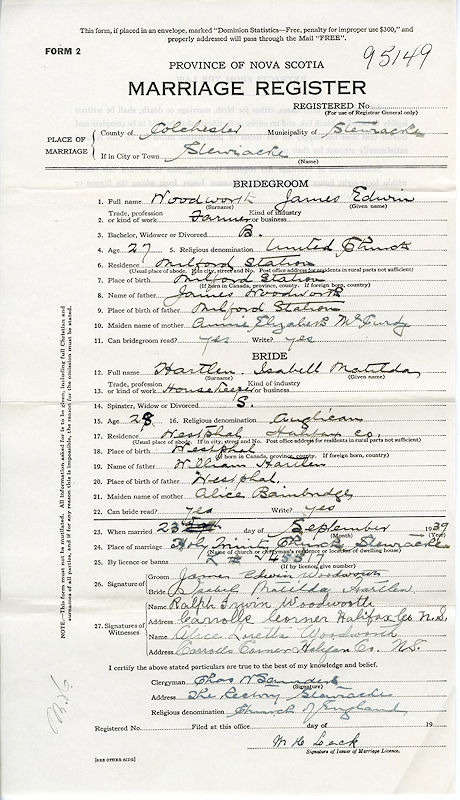 This form, if placed in an envelope, marked "Dominion Statistics—Free, penalty for improper use $300," and
properly addressed will pass through the Mail "FREE".
FORM 2
95149
PROVINCE OF NOVA SCOTIA
MARRIAGE REGISTER
REGISTERED No
(For use of Registrar General only)
PLACE OF MARRIAGE
County of Colchester Municipality of Stewiacke
If in City or Town Stewiacke
(Name)
BRIDEGROOM
1. Full name Woodworth James Edwin
(Surname) (Given name)
2. Trade, profession or kind of work Farmer Kind of industry or business
3. Bachelor, Widower or Divorced B.
4. Age 27 5. Religious denomination United Church
6. Residence Milford Station
(Usual place of abode. If in city, street and No. Post office address for residents in rural parts not sufficient)
7. Place of birth Milford Station
(If born in Canada, province, county. If foreign born, country)
8. Name of father James Woodworth
9. Place of birth of father Milford Station
10. Maiden name of mother Annie Elizabeth McCurdy
11. Can bridegroom read? yes Write? yes
BRIDE
12. Full name Hartlen Isabell Matilda
(Surname) (Given name)
13. Trade, profession or kind of work House Keeper Kind of industry or business
14. Spinster, Widow or Divorced S.
15. Age 28 16. Religious denomination Anglican
17. Residence Westphal Halifax Co.
(Usual place of abode. If in city, street and No. Post office address for residents in rural parts not sufficient)
18. Place of birth Westphal
(If born in Canada, province, county. If foreign born, country)
19. Name of father William Hartlen
20. Place of birth of father Westphal.
21. Maiden name of mother Alice Bambridge
22. Can bride read? yes Write? yes
23. When married 23 day of September 1939
(Month) (Year)
24. Place of marriage Holy Trinity Church Stewiacke
(Name of church or clergyman's residence or location of dwelling house)
25. By licence or banns L # 24557
(If by licence, give number)
26. Signature of
Groom James Edwin Woodworth
Bride Isabel Matilda Hartlen
27. Signatures of Witnesses
Name Ralph Irwin Woodworth
Address Carrolls Corner Halifax Co N.S.
Name Alice Loretta Woodworth
Address Carrolls Corner Halifax Co. N.S.
I certify the above stated particulars are true to the best of my knowledge and belief.
Clergyman Chas N Saunders
(Signature)
Address The Rectory Stewiacke
Religious denomination Church of England
Registered No. Filed at this office day of 19
W H Leck
Signature of Issuer of Marriage Licence.
[SEE OTHER SIDE]
NOTE—This form must not be mutilated. All information asked for is to be given, including full Christian and
surnames of all parties, and if for any reason this is impossible, the reason for the omission must be stated.